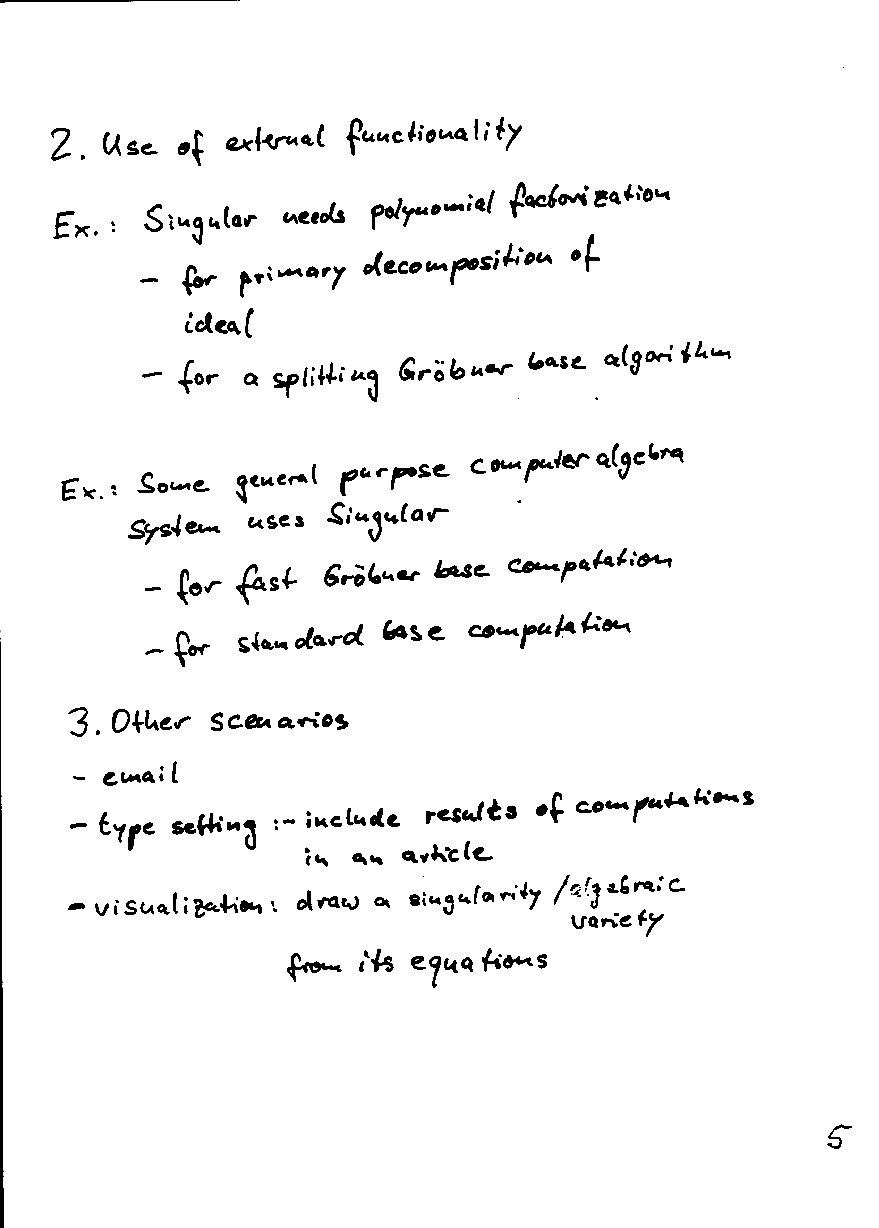 2. Use of external functionality
Ex.: Singular needs polynomial factorization
- for primary decomposition of
ideal
- for a splitting Gröbner base algorithm
Ex.: Some general purpose computer algebra
system uses Singular
- for fast Gröbner base computation
- for standard base computation
3. Other scenarios
- email
- type setting :- include results of computations
in an article
- visualization: draw a singularity / algebraic
variety
from its equations
5